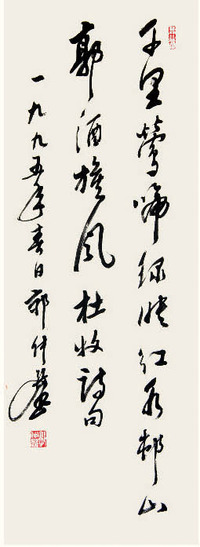 千里鶯啼绿映红水邨山
郭酒旗风杜牧詩句
一九九五年春日郭仲選